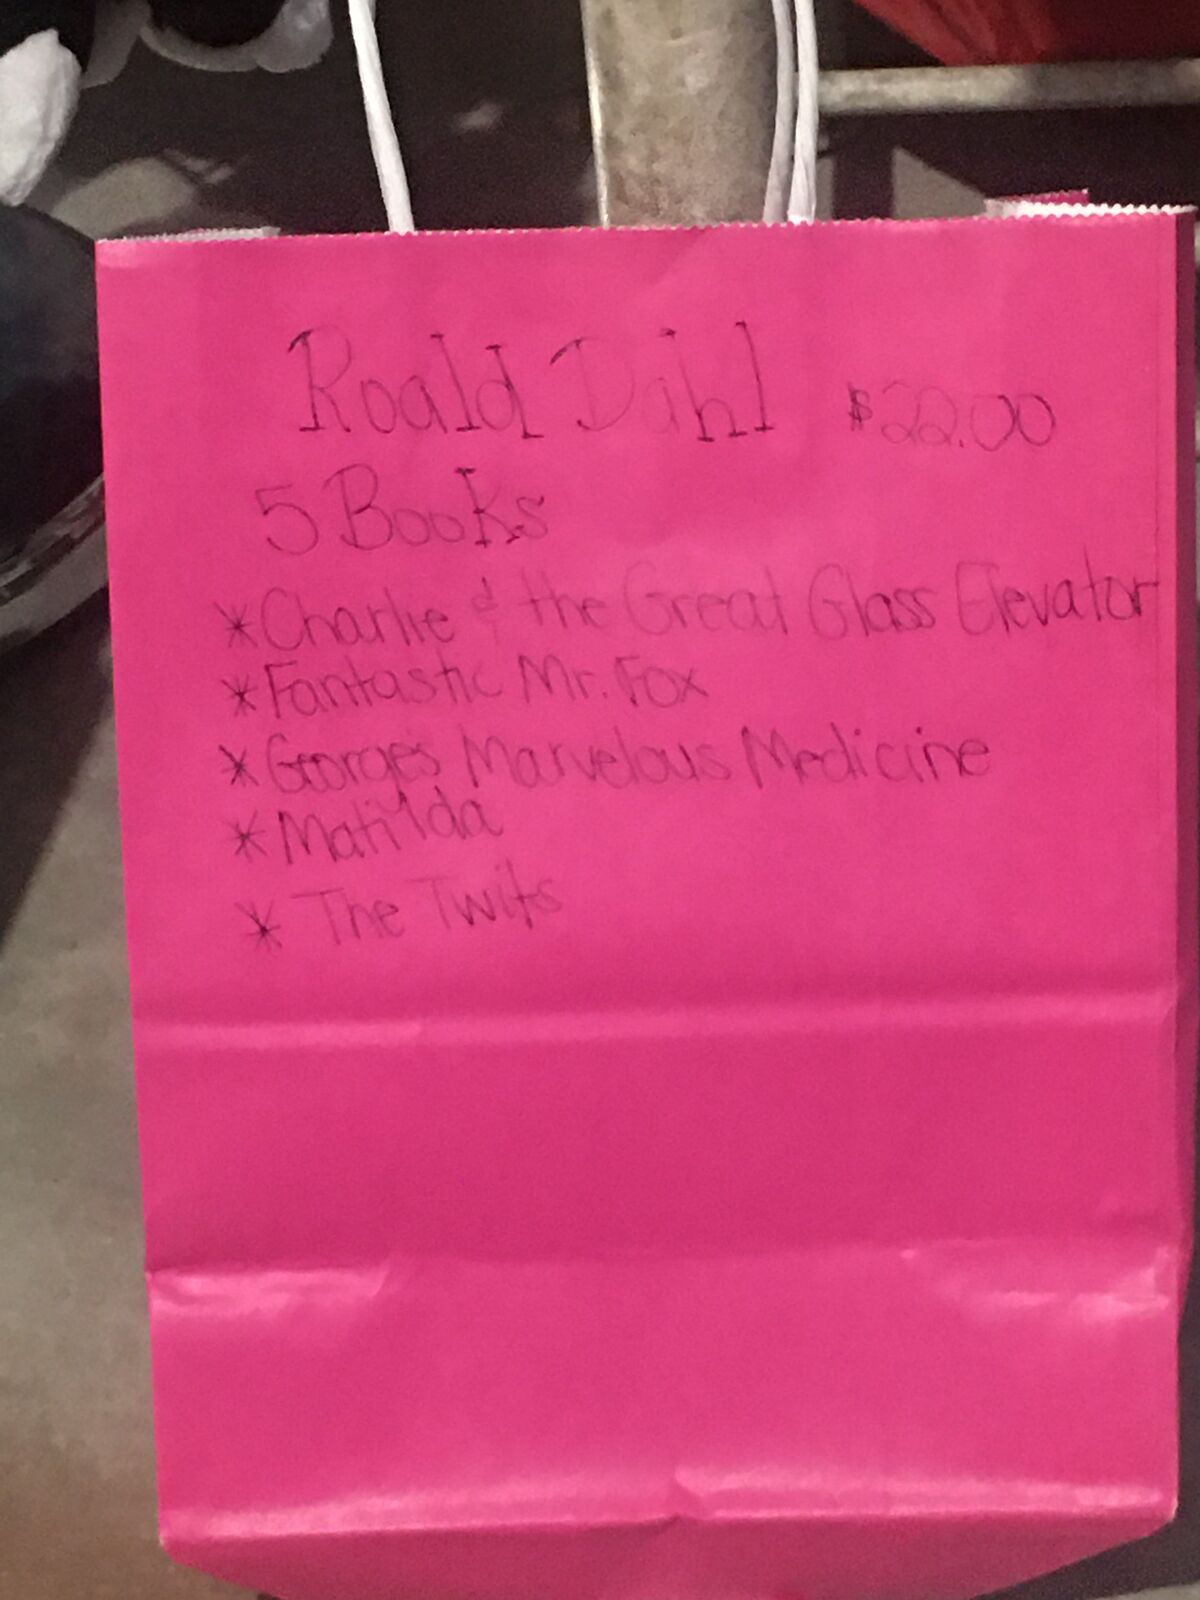 Roald Dahl $22.00
5 Books
*Charlie & the Great Glass Elevator
*Fantastic Mr. Fox
*George's Marvelous Medicine
*Matilda
*The Twits